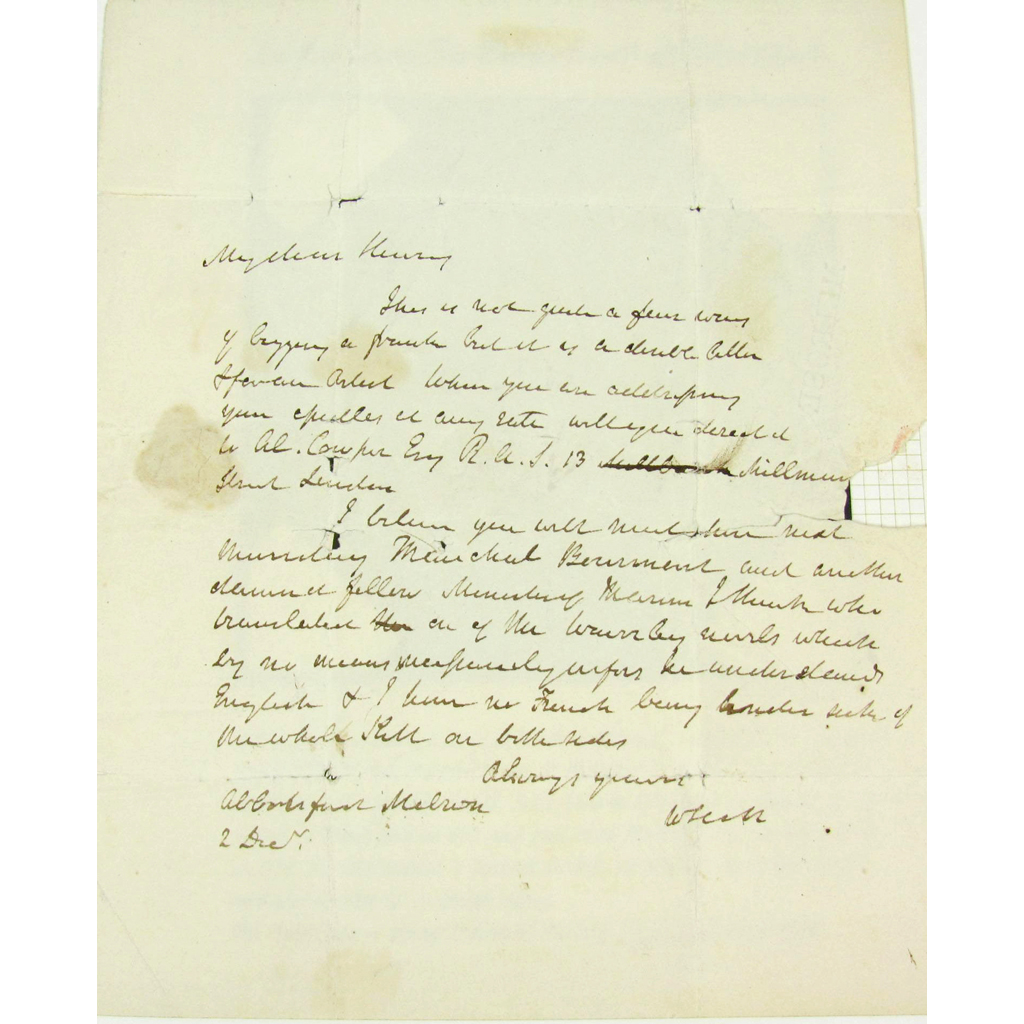 My dear Henry
This is not quite a fair way
of begging a frank but it is a double letter
& for an Artist When you are addressing
your epistles at any rate will you direct it
to A. Cowper Esq R.A.S. 13 Millbank Millman
Street London
I believe you will meet here next
Marechal Bourmont and another
damnd fellow Monsieur I think who
translated the on of the Waverley novels which
by no means necessarily infers he understands
English & I have no French being sick of
the whole Kitt on both sides
Always yours
Abbotsford Melrose
WScott
2 Decr.